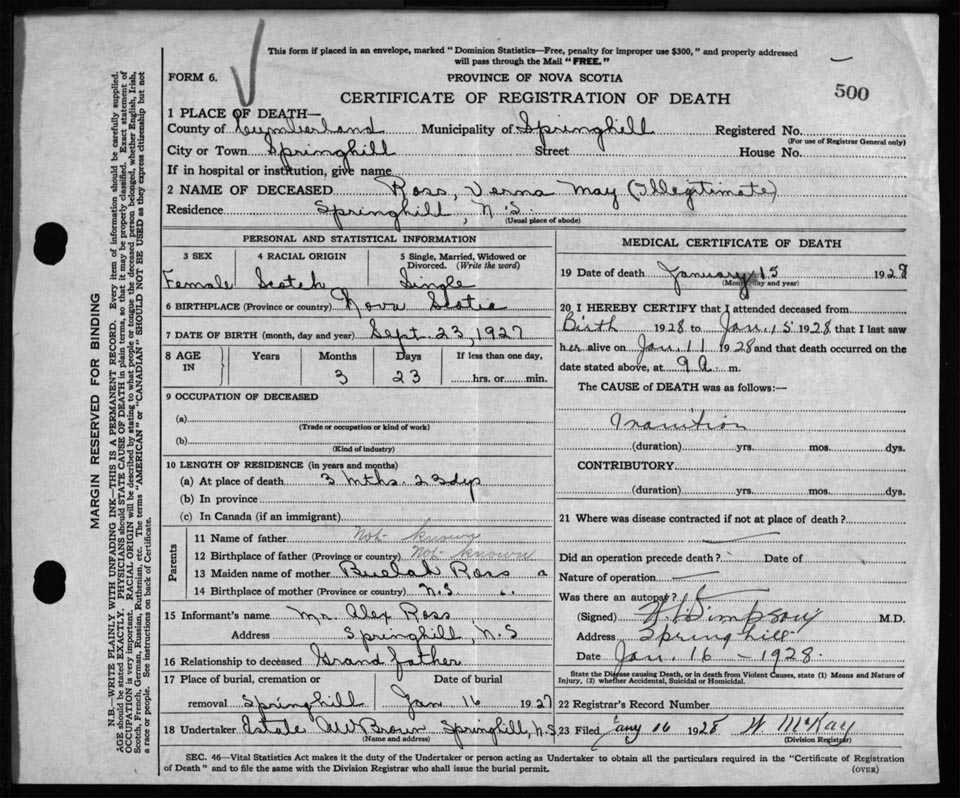 This form if placed in an envelope, marked "Dominion Statistics—Free, penalty for improper use $300," and properly addressed
will pass through the Mail "FREE."
FORM 6.
PROVINCE OF NOVA SCOTIA
500
CERTIFICATE OF REGISTRATION OF DEATH
1 PLACE OF DEATH—
County of Cumberland Municipality of Springhill Registered No.
(For use of Registrar General only)
City or Town Springhill Street House No.
If in hospital or institution, give name
2 NAME OF DECEASED Ross, Verna May (Illegitimate)
Residence Springhill, N.S.
(Usual place of abode)
PERSONAL AND STATISTICAL INFORMATION
3 SEX 4 RACIAL ORIGIN 5 Single, Married, Widowed or
Divorced. (Write the word)
Female Scotch Single
6 BIRTHPLACE (Province or country) Nova Scotia
7 DATE OF BIRTH (month, day and year) Sept. 23, 1927
8 AGE Years Months Days If less than one day,
IN 3 23 hrs. or min.
9 OCCUPATION OF DECEASED
(a)
(Trade or occupation or kind of work)
(b)
(Kind of industry)
10 LENGTH OF RESIDENCE (in years and months)
(a) At place of death 3 mths. 23 dys
(b) In province
(c) In Canada (if an immigrant)
Parents
11 Name of father Not known
12 Birthplace of father (Province or country) Not known
13 Maiden name of mother Buelah Ross
14 Birthplace of mother (Province or country) N.S.
15 Informant's name Mr. Alex Ross
Address Springhill, N.S
16 Relationship to deceased Grandfather
17 Place of burial, cremation or Date of burial
removal Springhill Jan 16 1927
18 Undertaker Estate AW Brown Springhill, N.S.
(Name and address)
MEDICAL CERTIFICATE OF DEATH
19 Date of death January 15 1928
(Month, day and year)
20 I HEREBY CERTIFY that I attended deceased from
Birth 1928 to Jan. 15 1928 that I last saw
her alive on Jan 11 1928 and that death occurred on the
date stated above, at 9 a. m.
The CAUSE OF DEATH was as follows:—
Inanition
(duration) yrs. mos. dys.
CONTRIBUTORY
(duration) yrs. mos. dys.
21 Where was disease contracted if not at place of death?
Did an operation precede death? Date of
Nature of operation
Was there an autopsy?
(Signed) Simpson M.D.
Address Springhill
Date Jan. 16 - 1928.
State the Disease causing Death, or in death from Violent Causes, state (1) Means and Nature of
Injury, (2) whether Accidental, Suicidal or Homicidal.
22 Registrar's Record Number
23 Filed Jany 16 1928 W. McKay
(Division Registrar)
SEC. 46—Vital Statistics Act makes it the duty of the Undertaker or person acting as Undertaker to obtain all the particulars required in the "Certificate of Registration
of Death" and to file the same with the Division Registrar who shall issue the burial permit.
(OVER)
MARGIN RESERVED FOR BINDING
N.B.—WRITE PLAINLY WITH UNFADING INK—THIS IS A PERMANENT RECORD. Every item of information should be carefully supplied.
AGE should be stated EXACTLY. PHYSICIANS should STATE CAUSE OF DEATH in plain terms, so that it may be properly classified. Exact statement of
OCCUPATION is very important. RACIAL ORIGIN will be described by stating to what people or tongue the deceased person belonged, whether English, Irish,
Scotch, French, German, Russian, Ruthenian, etc. The terms "AMERICAN" or "CANADIAN" SHOULD NOT BE USED as they express citizenship but not
a race or people. See instructions on back of Certificate.